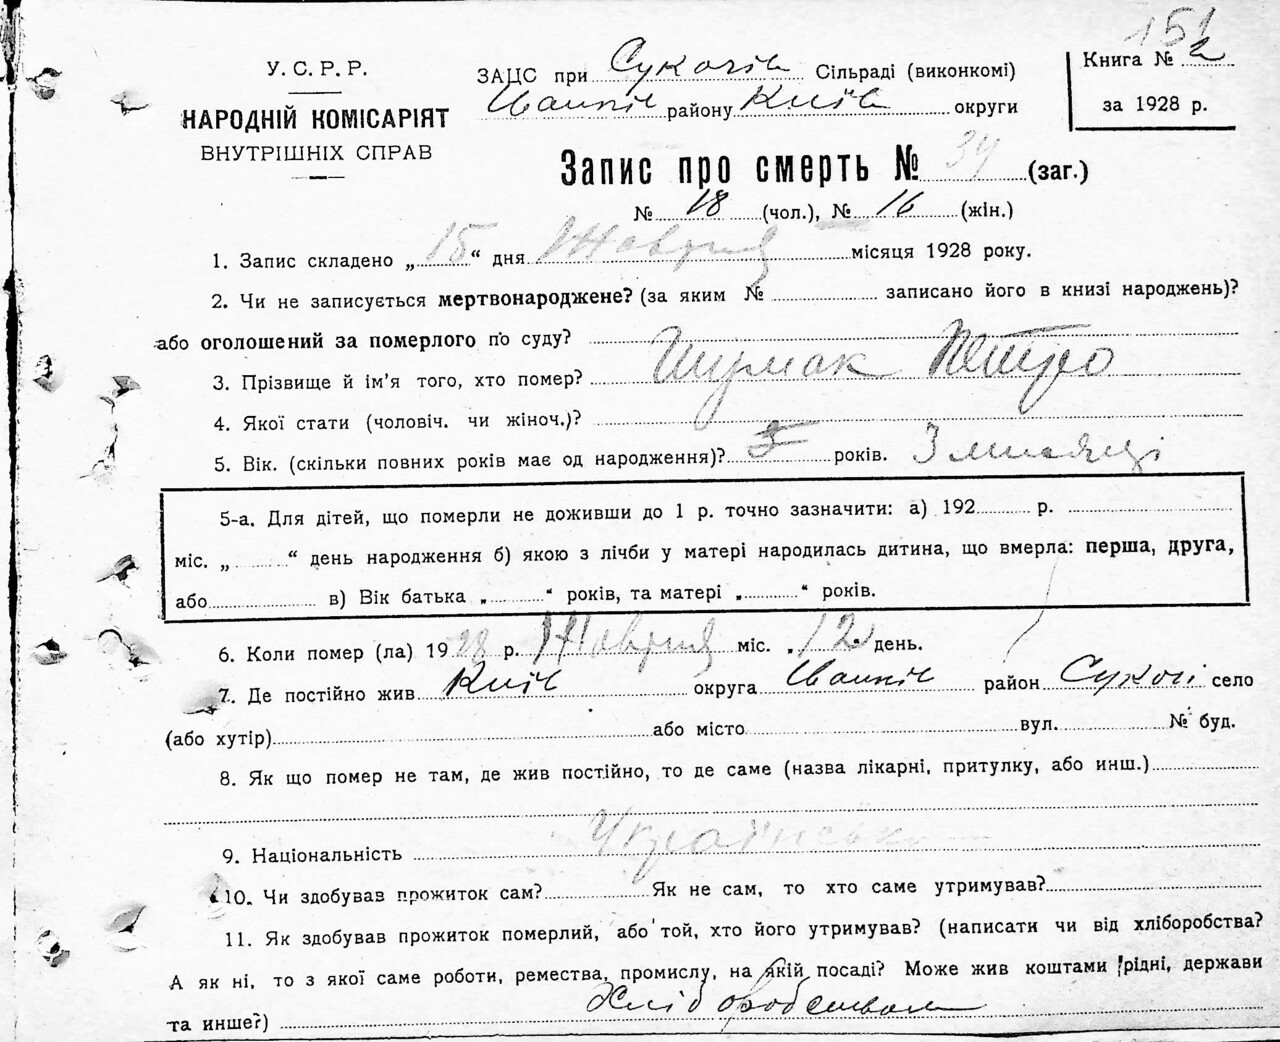 151
У. С. Р. Р.
НАРОДНІЙ КОМІСАРІЯТ
ВНУТРІШНІХ СПРАВ
ЗАЦС при Сукачів Сільраді (виконкомі)
Іванків району Київ округи
Книга № 2
за 1928 р.
Запис про смерть № 34 (заг.)
№ 18 (чол.), № 16 (жін.)
1. Запис складено „ 15 “ дня Жовтня місяця 1928 року.
2. Чи не записується мертвонароджене? (за яким № записано його в книзі народжень)?
або оголошений за померлого по суду?
3. Прізвище й ім'я того, хто помер? Шумак Петро
4. Якої стати (чоловіч. чи жіноч.)?
5. Вік. (скільки повних років має од народження)? років. 3 місяці
5-а. Для дітей, що померли не доживши до 1 р. точно зазначити: а) 192 р.
міс. „ “ день народження б) якою з лічби у матері народилась дитина, що вмерла: перша, друга,
або в) Вік батька „ “ років, та матері „ “ років.
6. Коли помер (ла) 1928 р. Жовтня міс. 12 день.
7. Де постійно жив Київ округа Іванків район Сукачі село
(або хутір) або місто вул. № буд.
8. Як що помер не там, де жив постійно, то де саме (назва лікарні, притулку, або инш.)
9. Національність Українська
10. Чи здобував прожиток сам? Як не сам, то хто саме утримував?
11. Як здобував прожиток померлий, або той, хто його утримував? (написати чи від хліборобства?
А як ні, то з якої саме роботи, ремества, промислу, на якій посаді? Може жив коштами рідні, держави
та инше?) Хліборобством